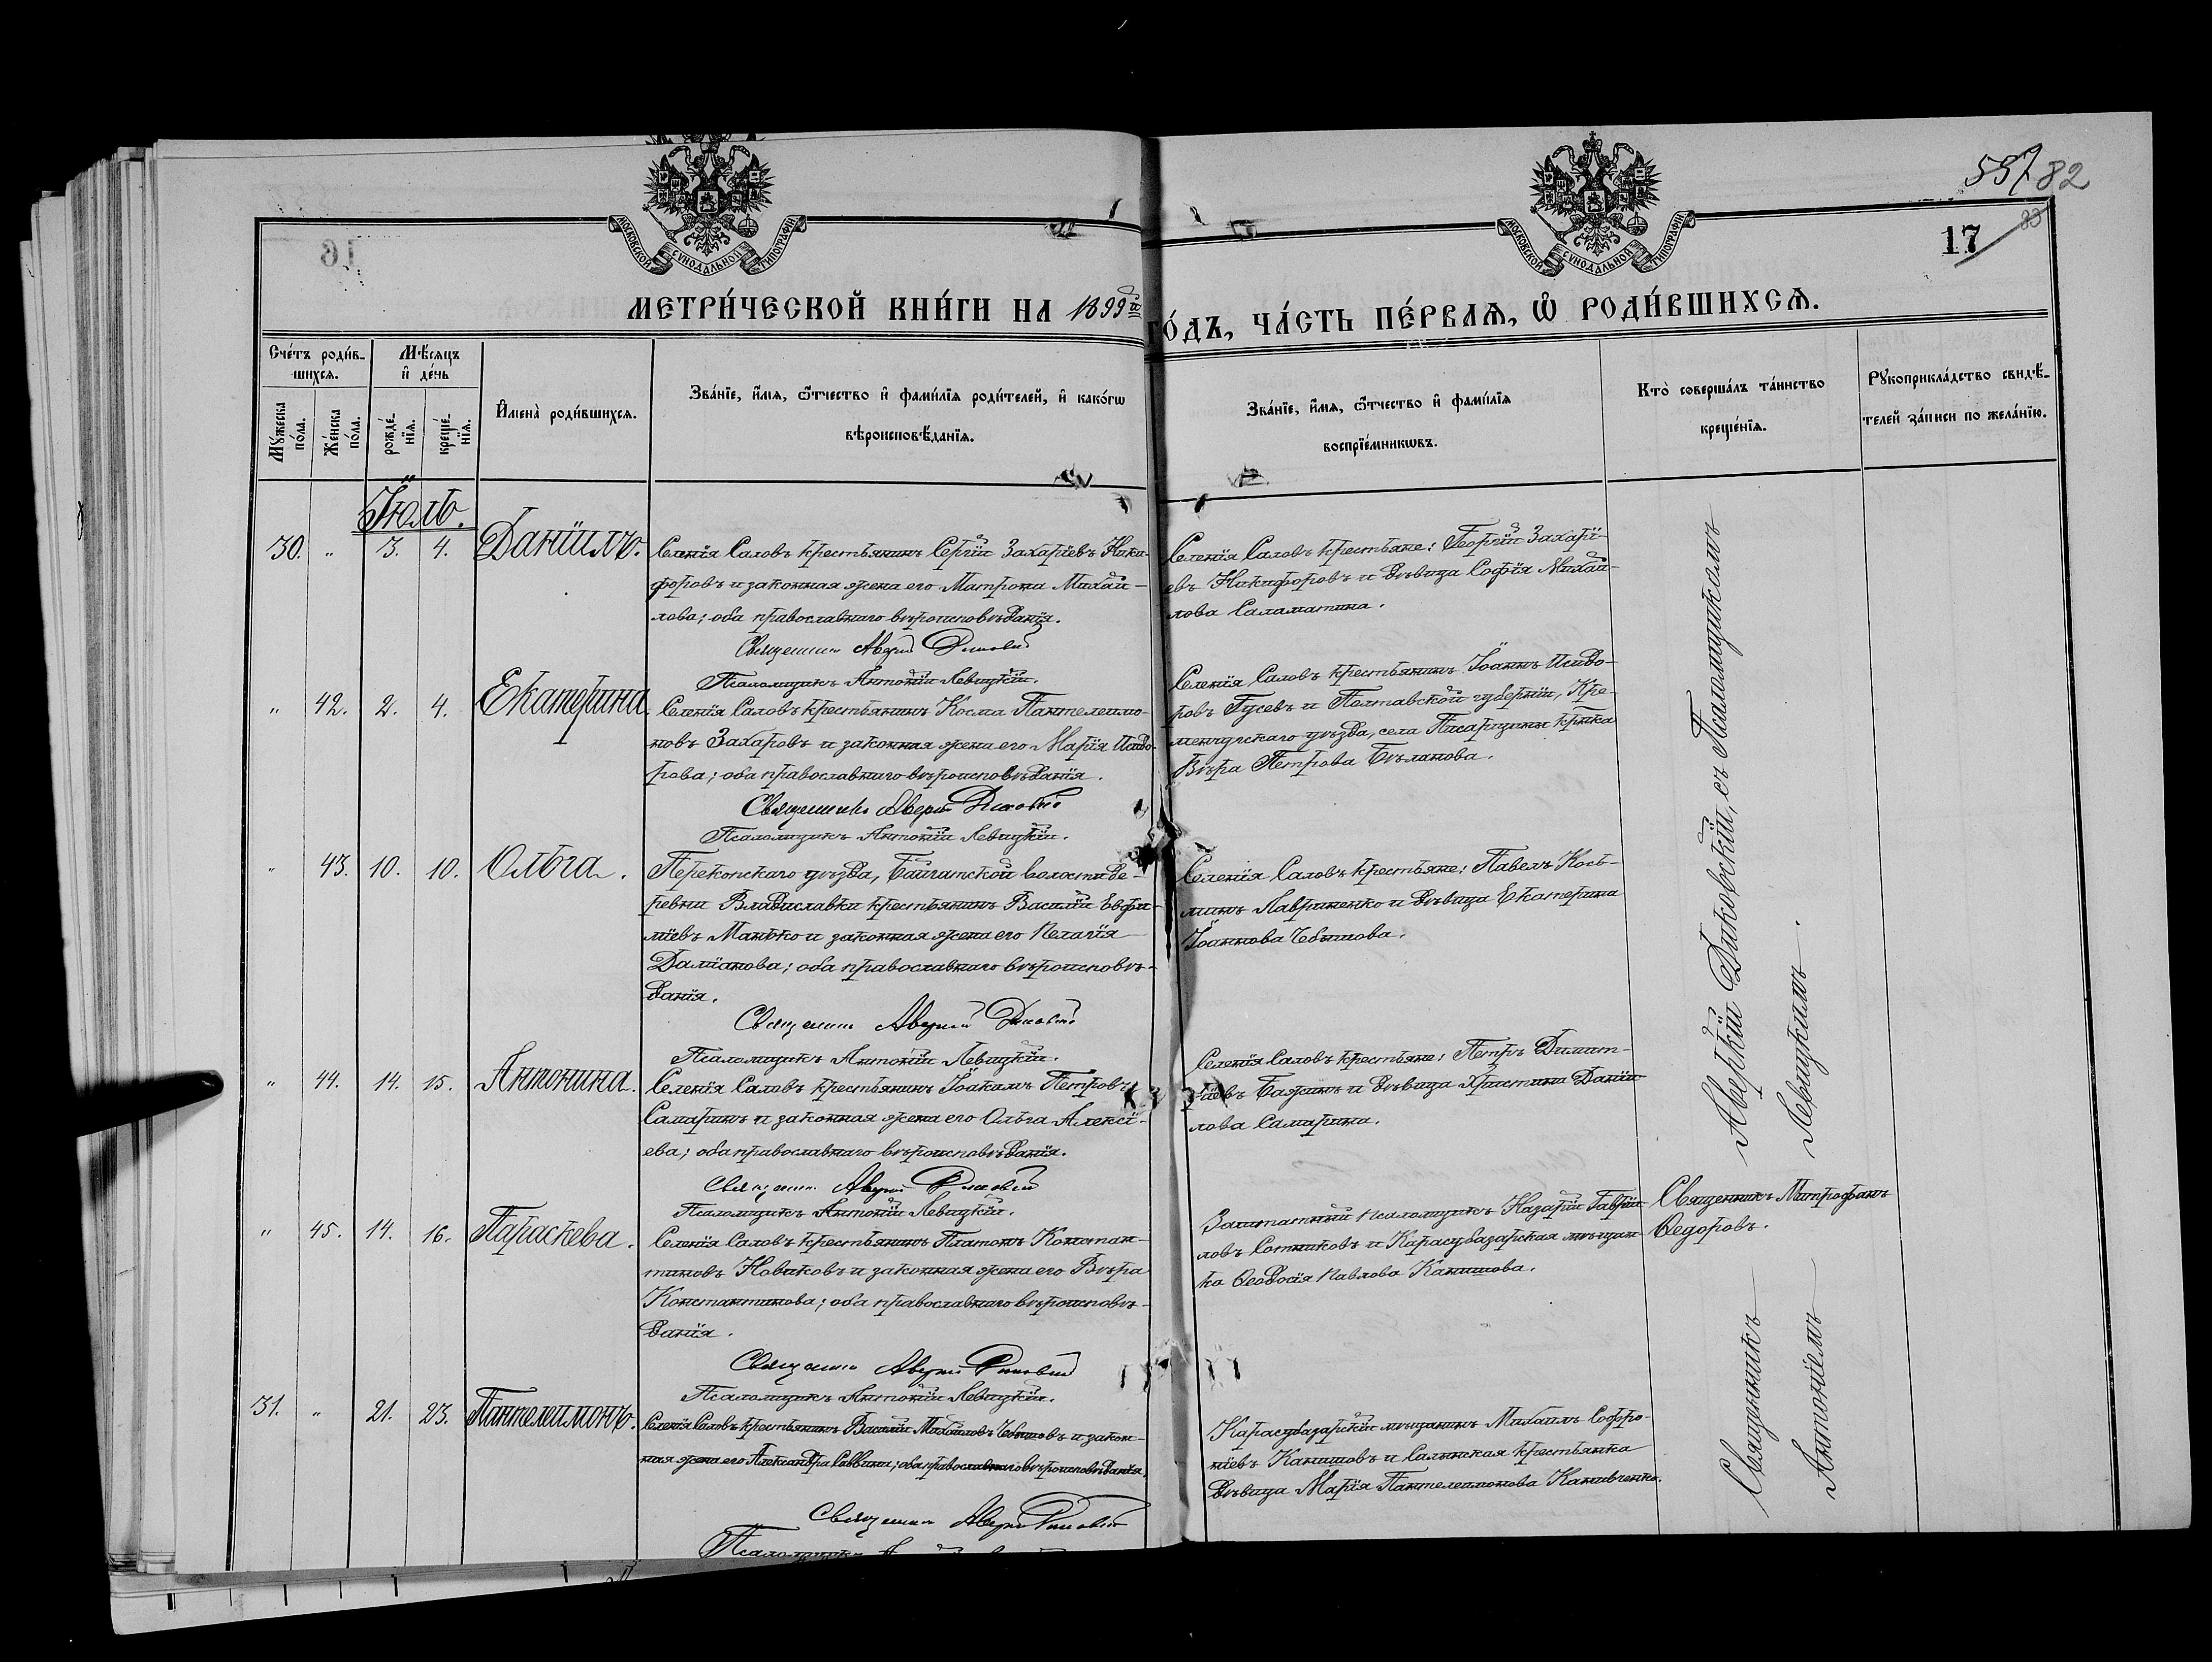 МОСКОВСКОЙ СУНОДАЛЬНОЙ ТИПОГРАФІИ
МОСКОВСКОЙ СУНОДАЛЬНОЙ ТИПОГРАФІИ
557 82
16
17
МЕТРИ́ЧЕСКОЙ КНИ́ГИ НА 1899й ГО́ДЪ, ЧА́СТЬ ПЕ́РВАѦ, Ѿ РОДИ́ВШИХСѦ.
Сче́тъ роди́в-
шихсѧ.
Мѣ́сѧцъ
и҆ де́нь
Мꙋ́жеска
по́ла.
Же́нска
по́ла.
рожде́-
нїѧ.
креще́-
нїѧ.
И҆мена̀ роди́вшихсѧ.
Зва́нїе, и҆́мѧ, ѻ҆́тчество и҆ фами́лїѧ роди́телей, и҆ како́гѡ
вѣроисповѣ́данїѧ.
Зва́нїе, и҆́мѧ, ѻ҆́тчество и҆ фами́лїѧ
воспрїе́мникѡвъ.
Кто̀ соверша́лъ та́инство
креще́нїѧ.
Рꙋкоприкла́дство свидѣ́-
телей за́писи по жела́нїю.
Іюль.
30. „ 3. 4. Даніилъ.
Селенія Саловъ крестьянинъ Сергій Захаріевъ Ники-
форовъ и законная жена его Матрона Михай-
лова; оба православнаго вѣроисповѣданія.
Священникъ Аверкій Диковскій
Псаломщикъ Антоній Левицкій.
Селенія Саловъ крестьяне: Георгій Захарі-
евъ Никифоровъ и дѣвица Софія Михай-
лова Саламатина.
„ 42. 2. 4. Екатерина.
Селенія Саловъ крестьянинъ Косма Пантелеимо-
новъ Захаровъ и законная жена его Марія Исидо-
рова; оба православнаго вѣроисповѣданія.
Священникъ Аверкій Диковскій
Псаломщикъ Антоній Левицкій.
Селенія Саловъ крестьянинъ Іоаннъ Исидо-
ровъ Гусевъ и Полтавской губерніи, Кре-
менчугскаго уѣзда, села Писарщины кр-нка
Вѣра Петрова Бѣланова.
„ 43. 10. 10. Ольга.
Перекопскаго уѣзда, Байгатской волости де-
ревни Владиславки крестьянинъ Василій Евфи-
міевъ Манько и законная жена его Пелагія
Даміанова; оба православнаго вѣроисповѣ-
данія.
Священникъ Аверкій Диковскій
Псаломщикъ Антоній Левицкій.
Селенія Саловъ крестьяне: Павелъ Кось-
минъ Лавриненко и дѣвица Екатерина
Іоаннова Чебышова.
„ 44. 14. 15. Антонина.
Селенія Саловъ крестьянинъ Іоакимъ Петровъ
Самаринъ и законная жена его Ольга Алексі-
ева; оба православнаго вѣроисповѣданія.
Священникъ Аверкій Диковскій
Псаломщикъ Антоній Левицкій.
Селенія Саловъ крестьяне: Петръ Димит-
ріевъ Бажинъ и дѣвица Христина Даніи-
лова Самарина.
„ 45. 14. 16. Параскева.
Селенія Саловъ крестьянинъ Платонъ Констан-
тиновъ Новиковъ и законная жена его Вѣра
Константинова; оба православнаго вѣроисповѣ-
данія.
Священникъ Аверкій Диковскій
Псаломщикъ Антоній Левицкій.
Заштатный псаломщикъ Назарій Гаврій-
ловъ Сотниковъ и Карасубазарская мѣщан-
ка Ѳеодосія Павлова Канишова.
Священникъ Митрофанъ
Ѳедоровъ.
31. „ 21. 23. Пантелеимонъ.
Селенія Саловъ крестьянинъ Василій Михайловъ Чебышовъ и закон-
ная жена его Александра Саввина; оба православнаго вѣроисповѣданія.
Священникъ Аверкій Диковскій
Псаломщикъ
Карасубазарскій мѣщанинъ Михаилъ Софро-
ніевъ Канишовъ и Салынская крестьянка
дѣвица Марія Пантелеимонова Канивченко.
Священникъ Аверкій Диковскій, съ Псаломщикомъ
Антоніемъ Левицкимъ.